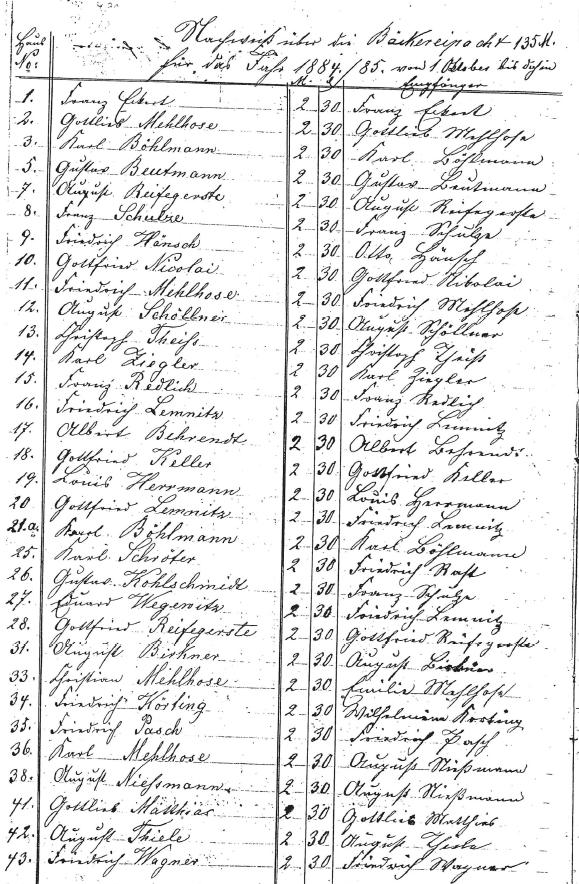 Haus No: Nachweiß über die Bäckereipacht 135 M.
für das Jahr 1884/85. vom 1 Oktober bis dahin
M. Empfänger
1. Franz Eckert 2 30 Franz Eckert
2. Gottlieb Mehlhose 2 30 Gottlieb Mehlhose
3. Karl Böhlmann 2 30 Karl Böhlmann
5. Gustav Beutmann 2 30 Gustav Beutmann
7. August Reifegerste 2 30 August Reifegerste
8. Franz Schulze 2 30 Franz Schulze
9. Friedrich Hänsch 2 30 Otto Hänsch
10. Gottfried Nicolai 2 30 Gottfried Nikolai
11. Friedrich Mehlhose 2 30 Friedrich Mehlhose
12. August Schöllner 2 30 August Schöllner
13. Christoph Theiss 2 30 Christoph Theiss
14. Karl Ziegler 2 30 Karl Ziegler
15. Franz Redlich 2 30 Franz Redlich
16. Friedrich Lemnitz 2 30 Friedrich Lemnitz
17. Albert Behrendt 2 30 Albert Behrendt
18. Gottfried Keller 2 30 Gottfried Keller
19. Louis Herrmann 2 30 Louis Herrmann
20 Gottfried Lemnitz 2 30 Friedrich Lemnitz
21.a. Karl Böhlmann 2 30 Karl Böhlmann
25. Karl Schröter 2 30 Friedrich Rast
26. Gustav Kohlschmidt 2 30 Franz Schulze
27. Eduard Wegewitz 2 30 Friedrich Lemnitz
28. Gottfried Reifegerste 2 30 Gottfried Reifegerste
31. August Birkner 2 30 August Birkner
33. Christian Mehlhose 2 30 Emilie Mehlhose
34. Friedrich Körting 2 30 Wilhelmine Körting
35. Friedrich Pasch 2 30 Friedrich Pasch
36. Karl Mehlhose 2 30 August Nießmann
38. August Niessmann 2 30 August Nießmann
41. Gottlieb Matthias 2 30 Gottlieb Matthies
42. August Thiele 2 30 August Thiele
43. Friedrich Wagner 2 30 Friedrich Wagner